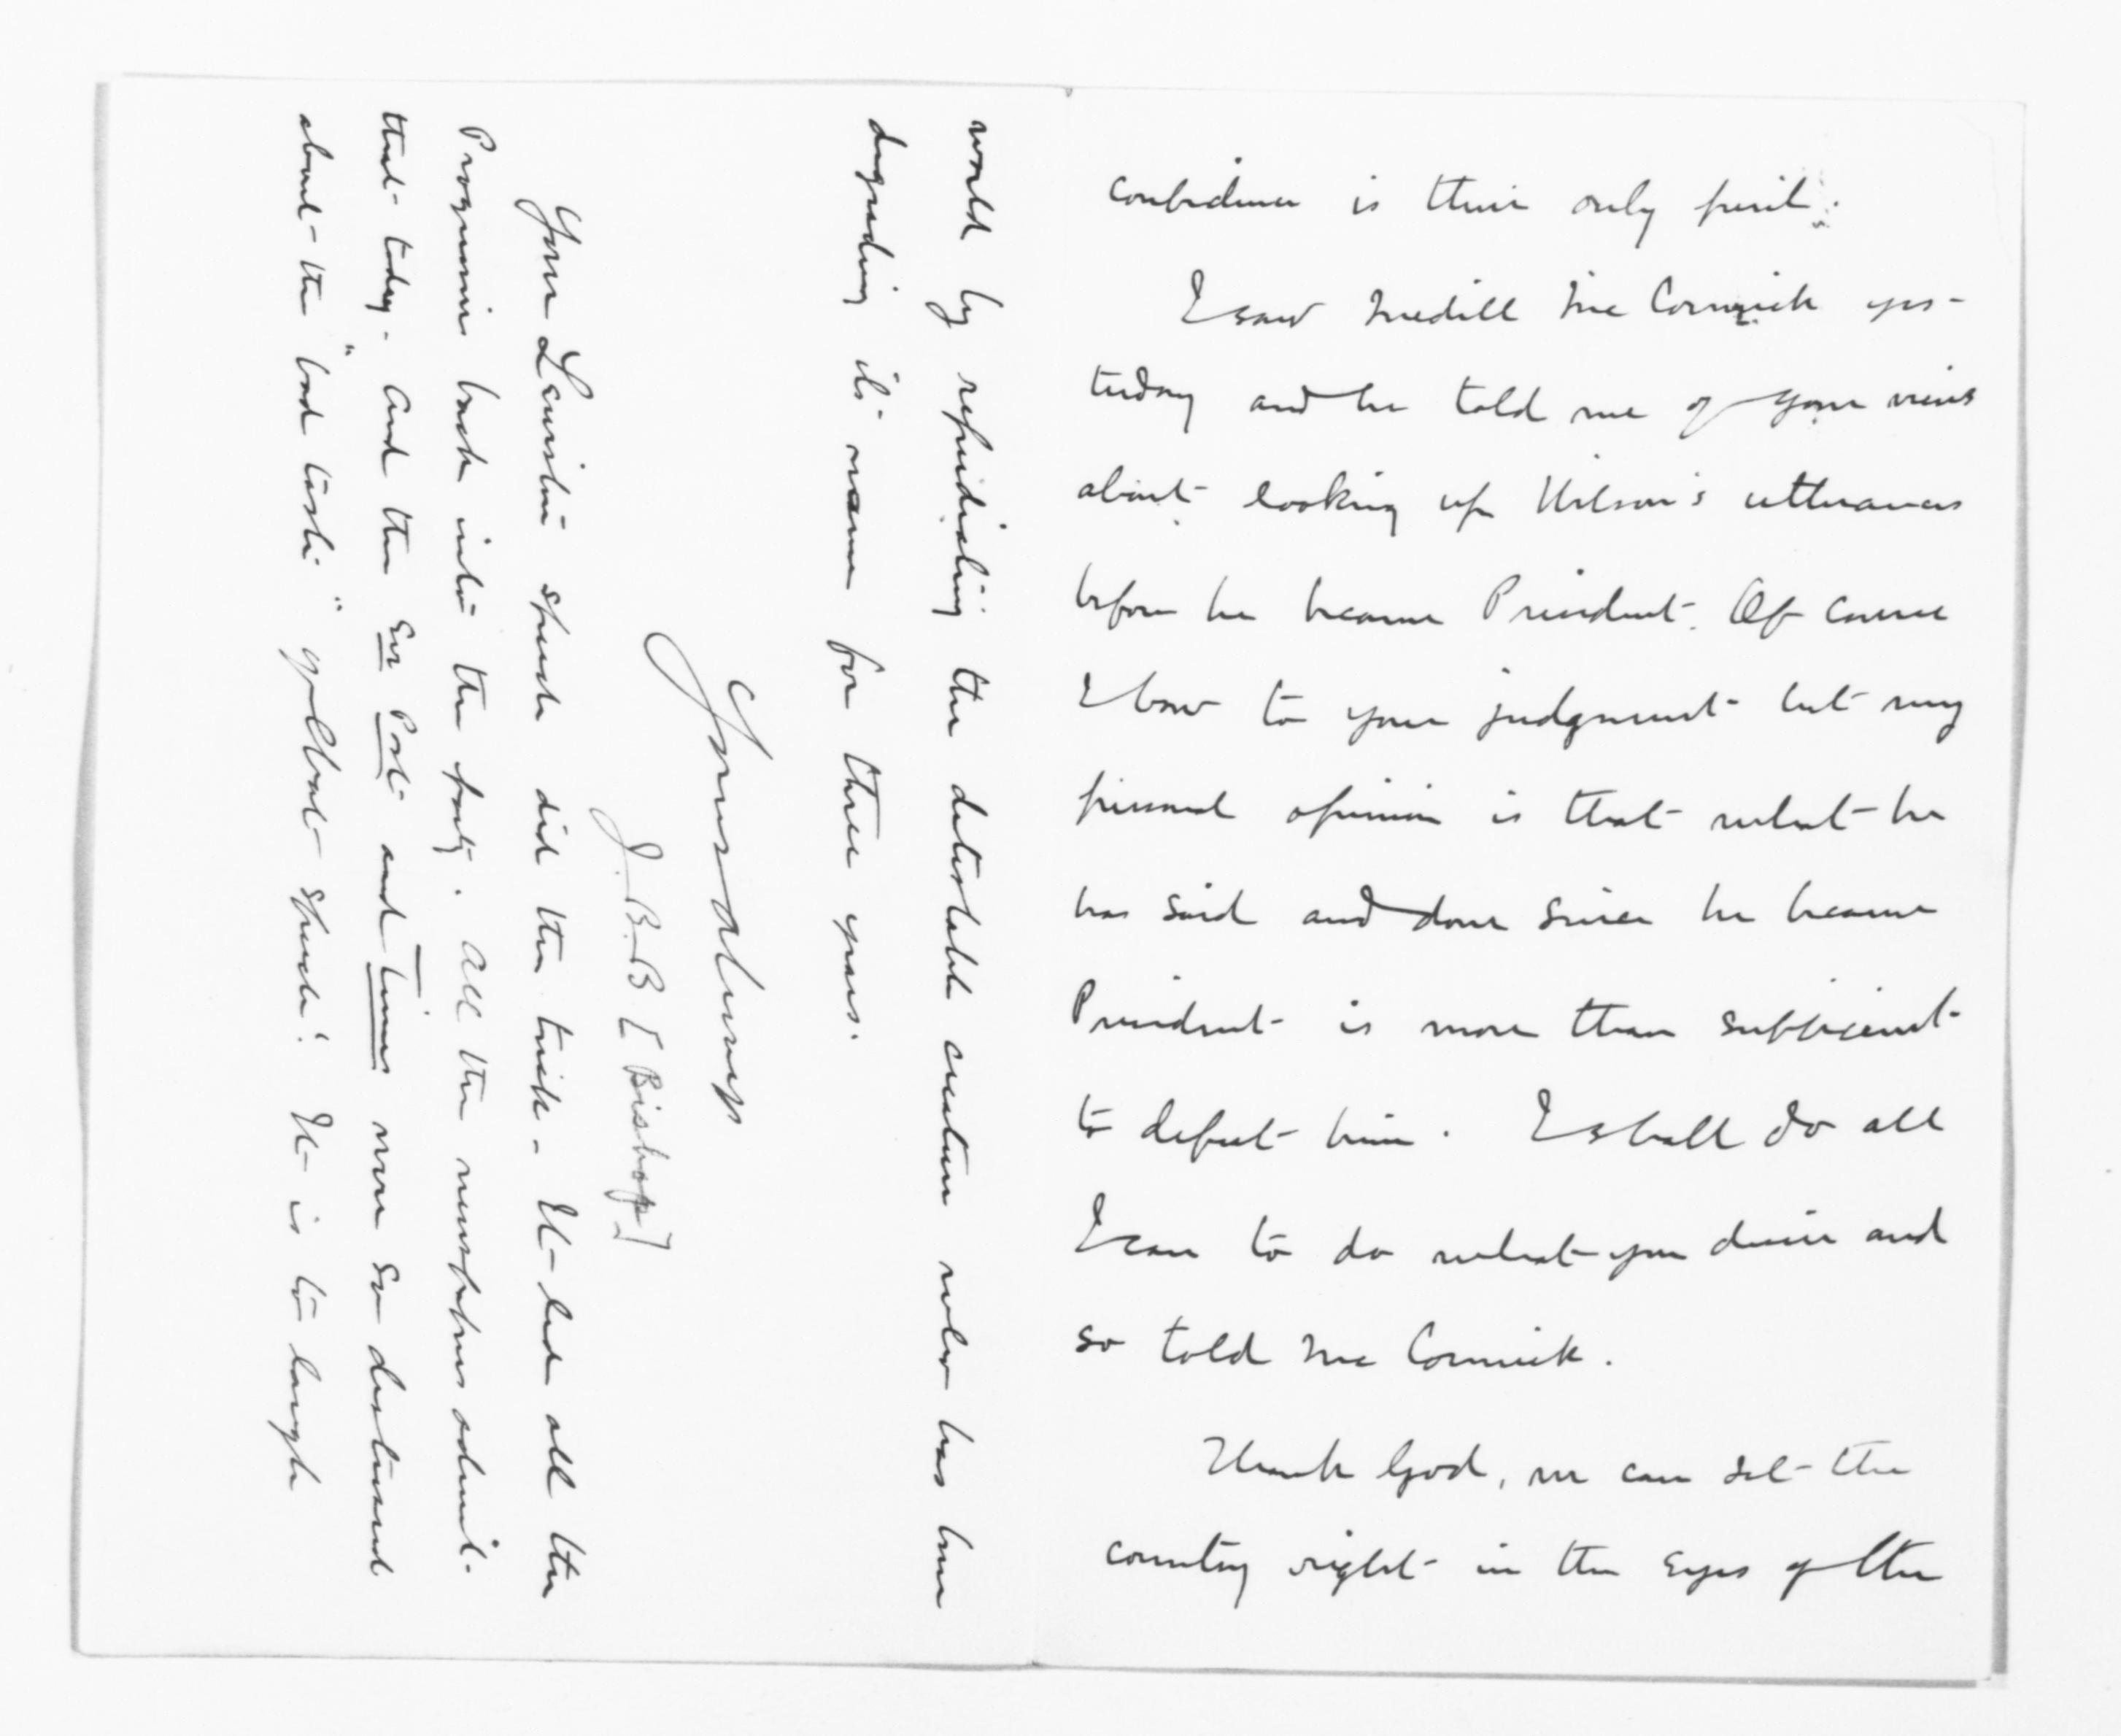 confidence is their only peril.
I saw Medill McCormick yes-
terday and he told me of your views
about looking up Wilson's utterances
before he became President. Of course
I bow to your judgment but my
personal opinion is that what he
has said and done since he became
President is more than sufficient
to defeat him. I shall do all
I can to do what you desire and
so told McCormick.
Thank God, we can set the
country right in the eyes of the
world by repudiating the detestable creature who has been
degrading its name for three years.
Yours always
J. B. B [Bishop]
Your Lewiston speech did the trick. It led all the
Progressives back into the party. All the newspapers admit
that today. And the Ev Post and Times were so distressed
about the "bad taste" of that speech! It is to laugh